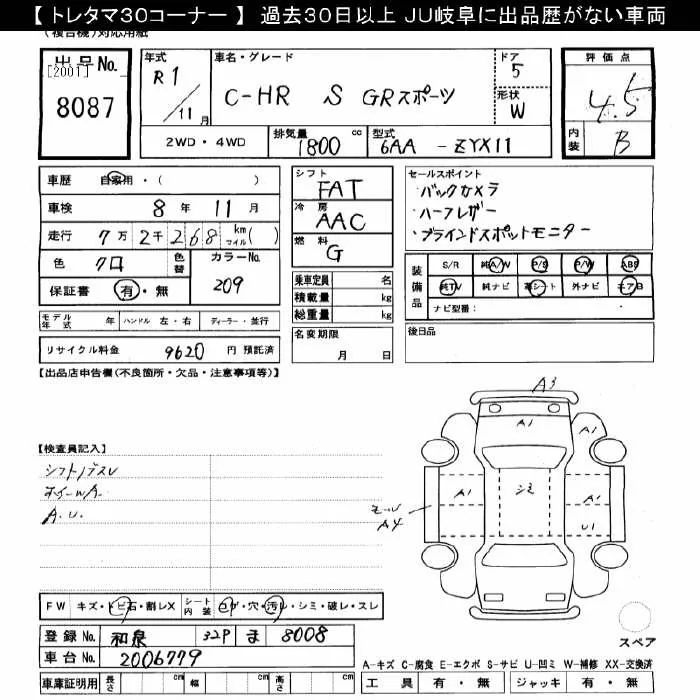 【 トレタマ30コーナー 】 過去30日以上 JU岐阜に出品歴がない車両
(複合機)対応用紙
出品No.
[2001]
8087
年式 R1/11月
車名・グレード
C-HR S GRスポーツ
ドア 5
形状 W
2WD・4WD
排気量 1800 cc
型式 6AA - ZYX11
評価点
4.5
内装 B
車歴 自家用・( )
車検 8年 11月
走行 7万 2千 268 km マイル( )
色 クロ 色替 カラーNo. 209
保証書 有・無
シフト FAT
冷房 AAC
燃料 G
乗車定員 名
積載量 kg
総重量 kg
セールスポイント
・バックカメラ
・ハーフレザー
・ブラインドスポットモニター
装備品 S/R 純A/W P/S P/W ABS
純TV 純ナビ 革シート 外ナビ エアB
ナビ型番:
モデル年式 年 ハンドル 左・右 ディーラー・並行
リサイクル料金 9620 円 預託済
名変期限 月 日
後日品
【出品店申告欄(不良箇所・欠品・注意事項等)】
A3
A1
A1
シミ
A1
U1
モール
A4
【検査員記入】
シフトノブスレ
ホイールA.
A.U.
FW キズ・トビ石・割レX シート内装 コゲ・穴・汚レ・シミ・破レ・スレ
スペア
登録No. 和泉 329 ま 8008
車台No. 2006779
A-キズ C-腐食 E-エクボ S-サビ U-凹ミ W-補修 XX-交換済
車庫証明用 長さ cm 幅 cm 高さ cm
工具 有・無 ジャッキ 有・無